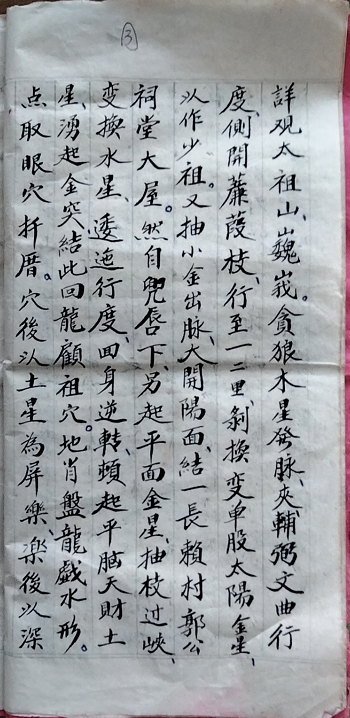 ③
詳观太祖山、巍峩。貪狼木星發脉、夾輔弼文曲行
度、側開蘼葭枝、行至一二里、剝換变单股太陽金星、
以作少祖。又抽小金出脉、大開陽面、結一長賴村郭公
祠堂大屋。然自兜唇下、另起平面金星、抽枝过峽、
变換水星、逶迤行度、回身逆轉、頓起平脑天財土
星、湧起金突結此回龍顧祖穴。地肖盤龍戲水形。
点取眼穴扦厝。穴後以土星為屏樂、樂後以深